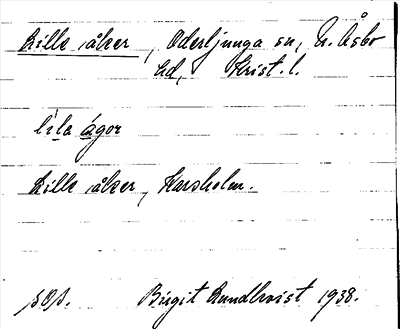 Lille åker, Oderljunga sn, N. Åsbo
hd, Krist. l.
lila ågor
Lille åker, Karsholm.
Birgit Lundkvist 1938.